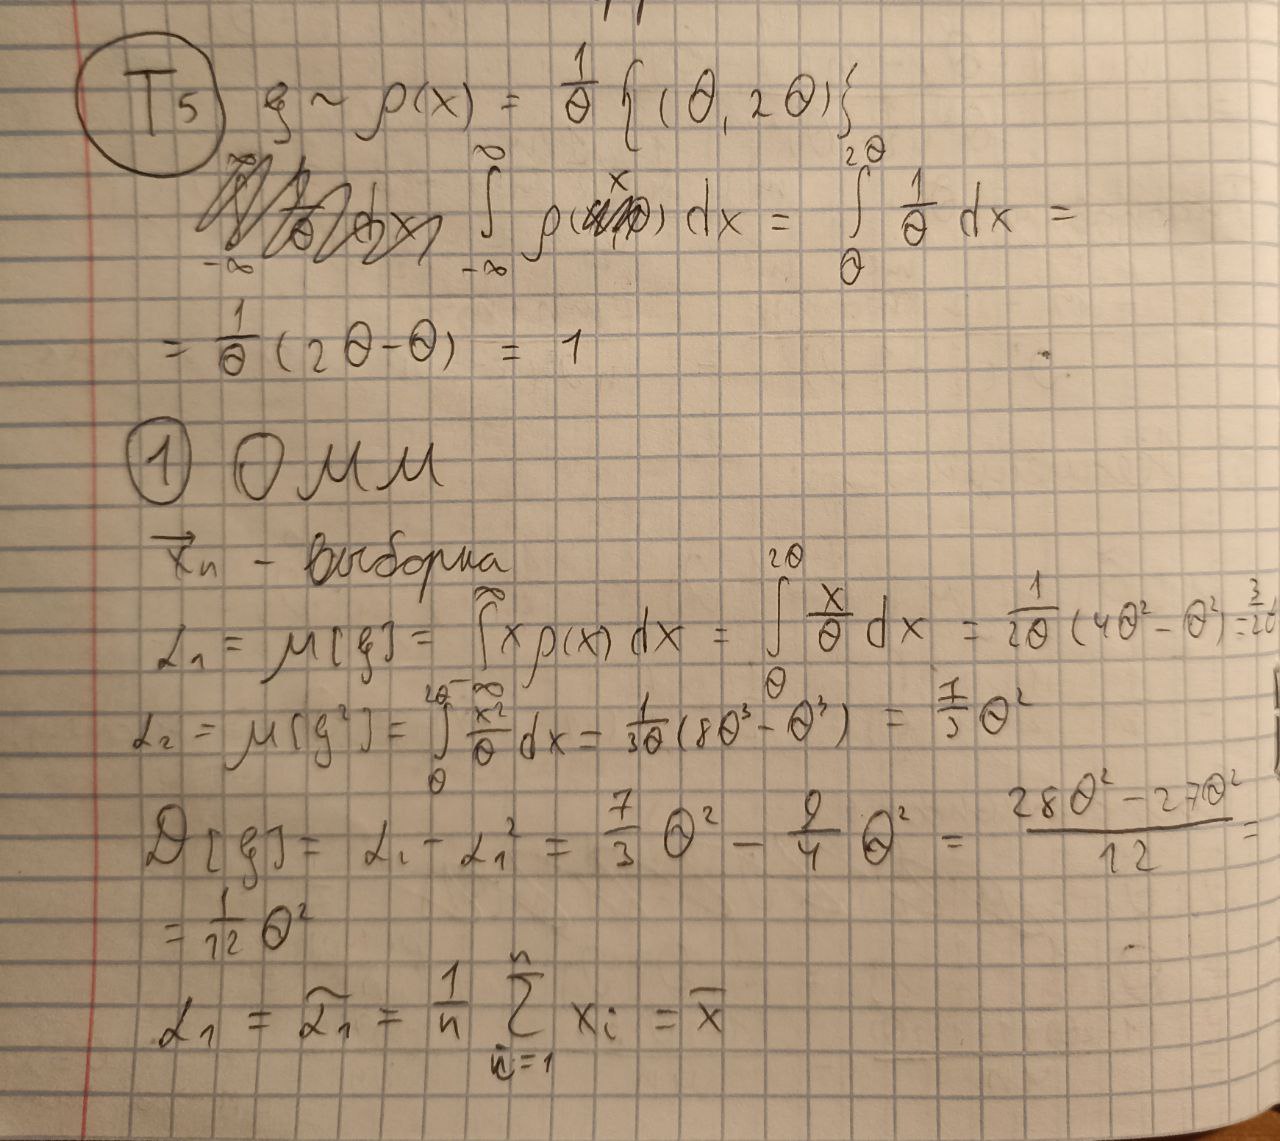 T5 ξ ~ ρ(x) = 1/θ {(θ, 2θ)}
∫_{-∞}^{∞} ρ(x) dx = ∫_{θ}^{2θ} 1/θ dx =
= 1/θ (2θ - θ) = 1
① ОММ
x⃗n - выборка
α₁ = M[ξ] = ∫_{-∞}^{∞} x ρ(x) dx = ∫_{θ}^{2θ} x/θ dx = 1/2θ (4θ² - θ²) = 3/2θ
α₂ = M[ξ²] = ∫_{θ}^{2θ} x²/θ dx = 1/3θ (8θ³ - θ³) = 7/3 θ²
D[ξ] = α₂ - α₁² = 7/3 θ² - 9/4 θ² = (28θ² - 27θ²)/12 =
= 1/12 θ²
α₁ = α̃₁ = 1/n ∑_{i=1}^{n} xi = x̄